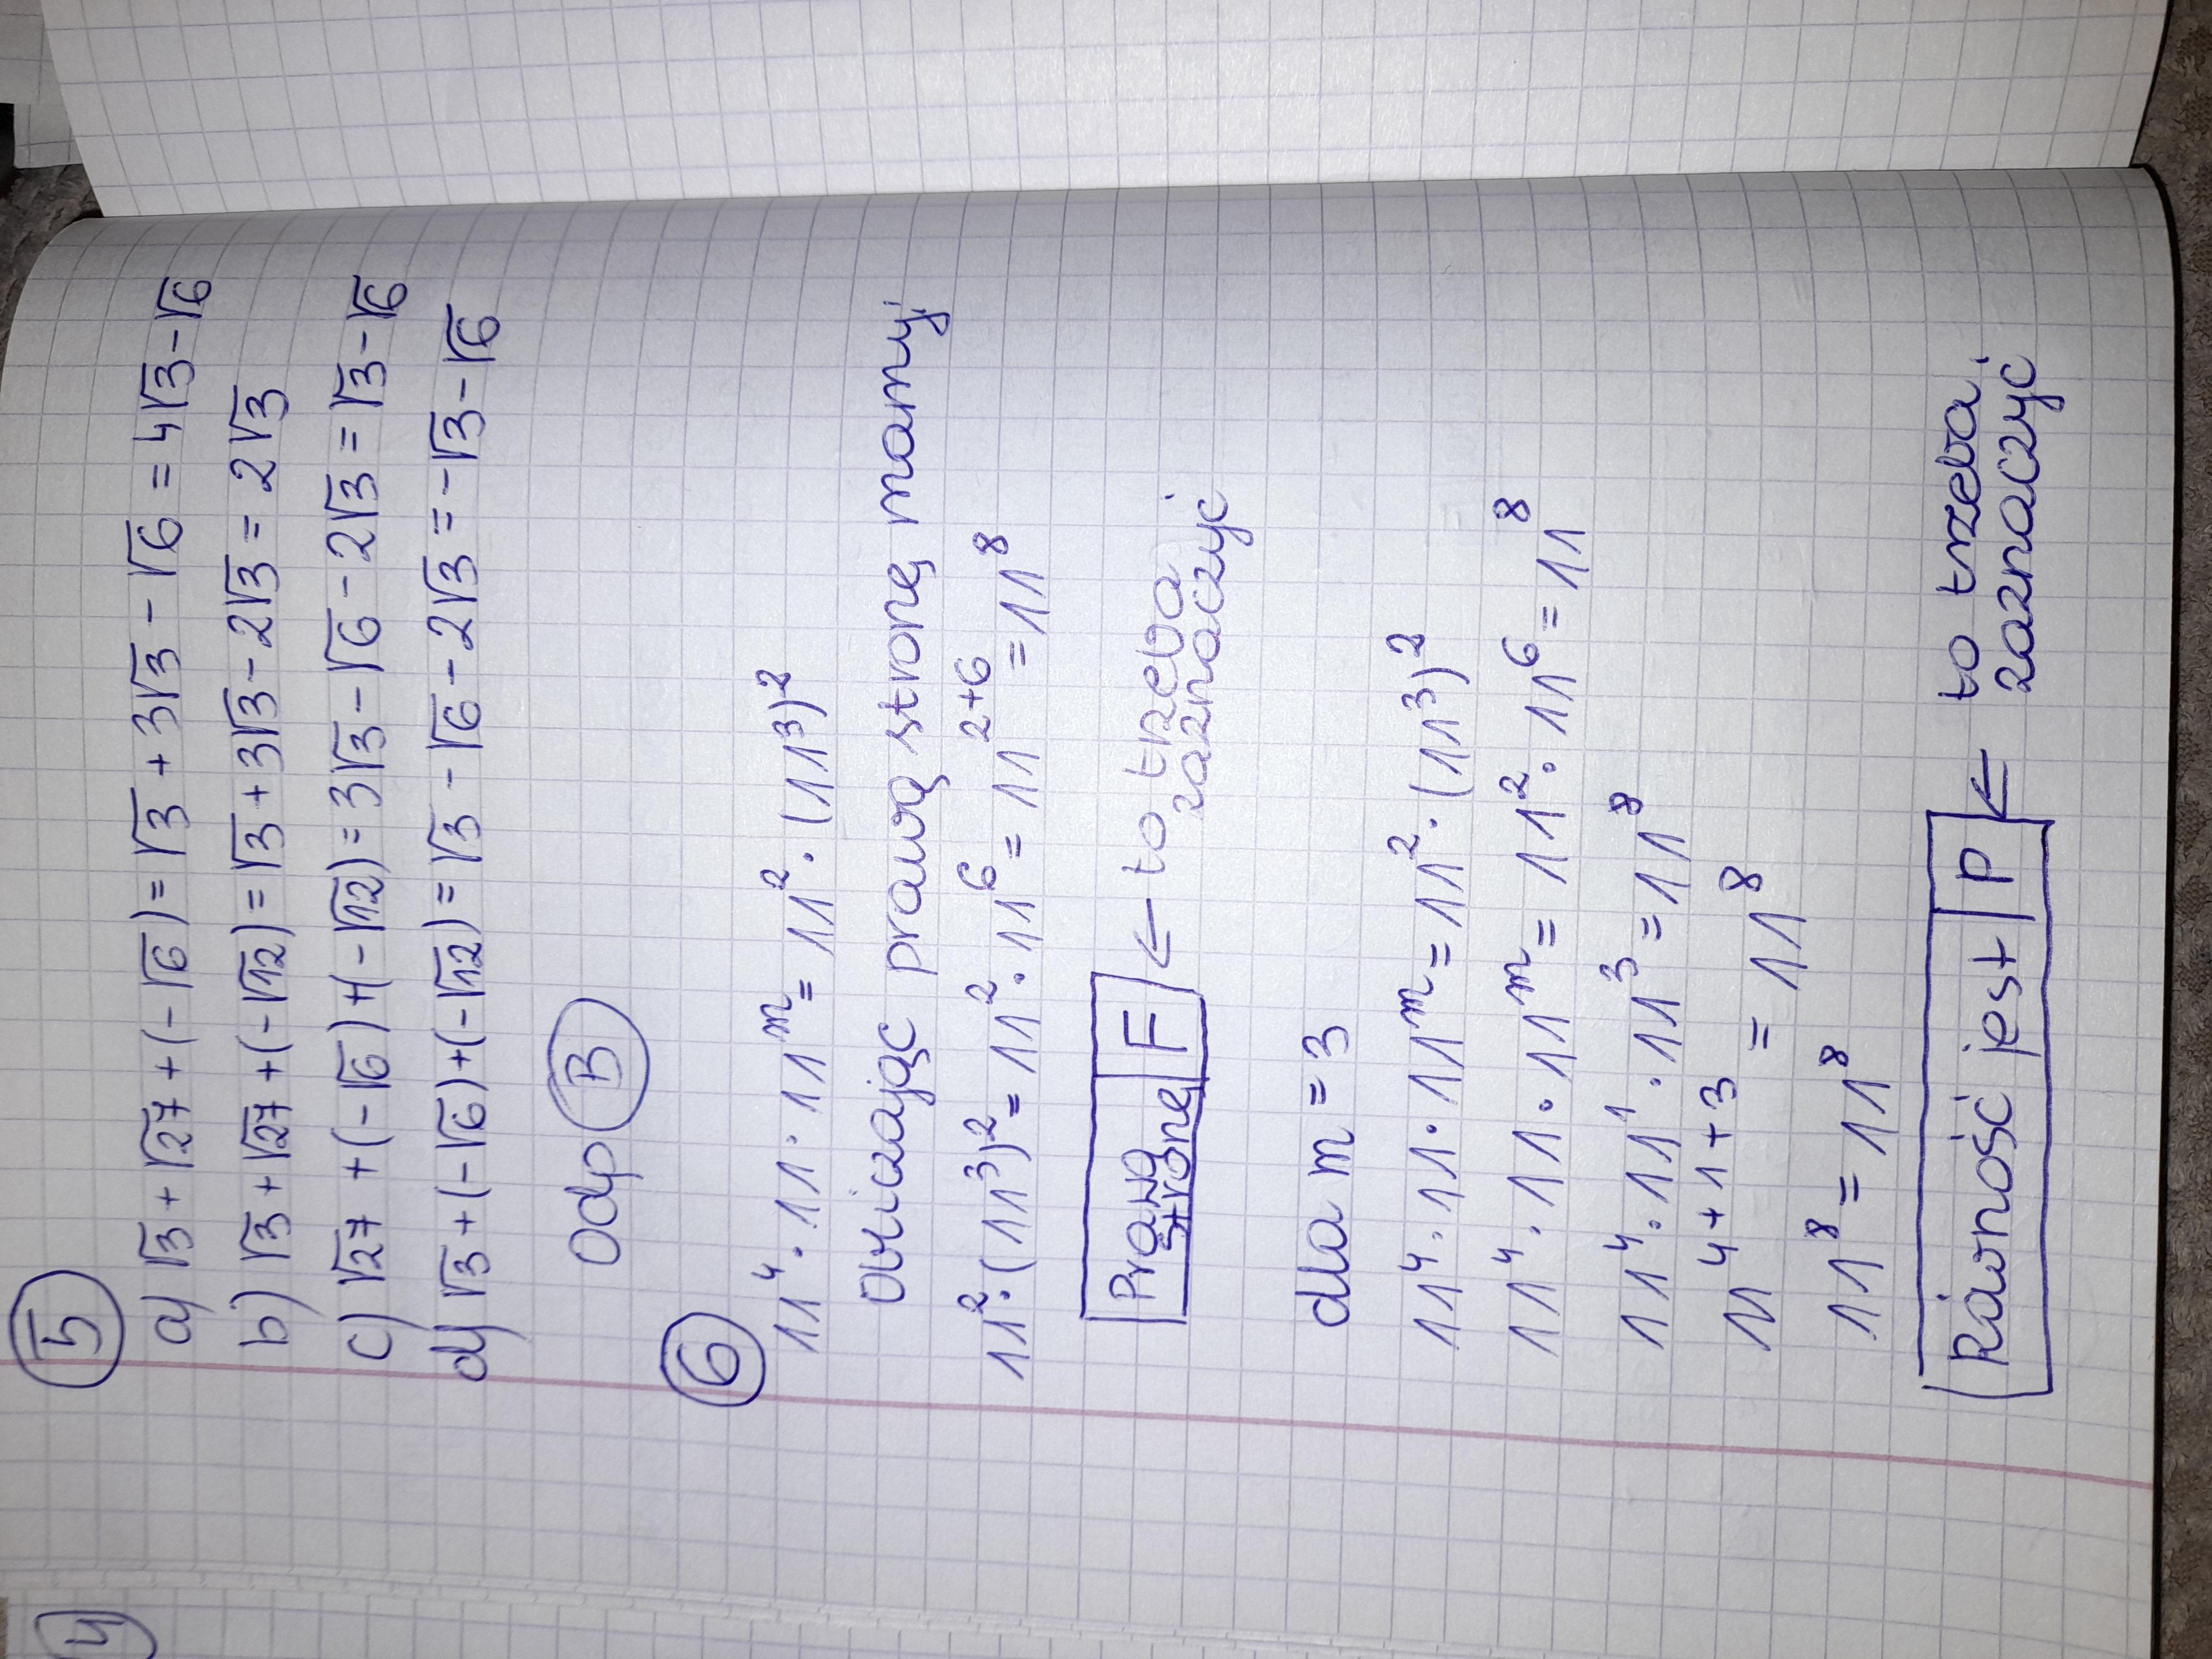 5
a) √3 + √27 + (-√6) = √3 + 3√3 - √6 = 4√3 - √6
b) √3 + √27 + (-√12) = √3 + 3√3 - 2√3 = 2√3
c) √27 + (-√6) + (-√12) = 3√3 - √6 - 2√3 = √3 - √6
d) √3 + (-√6) + (-√12) = √3 - √6 - 2√3 = -√3 - √6
Odp B
6
11⁴ · 11 · 11ᵐ = 11² · (11³)²
Obliczając prawą stronę mamy:
11² · (11³)² = 11² · 11⁶ = 11²⁺⁶ = 11⁸
Prawą stronę F ← to trzeba zaznaczyć
dla m = 3
11⁴ · 11 · 11ᵐ = 11² · (11³)²
11⁴ · 11 · 11ᵐ = 11² · 11⁶ = 11⁸
11⁴ · 11¹ · 11³ = 11⁸
11⁴⁺¹⁺³ = 11⁸
11⁸ = 11⁸
Równość jest P ← to trzeba zaznaczyć
4